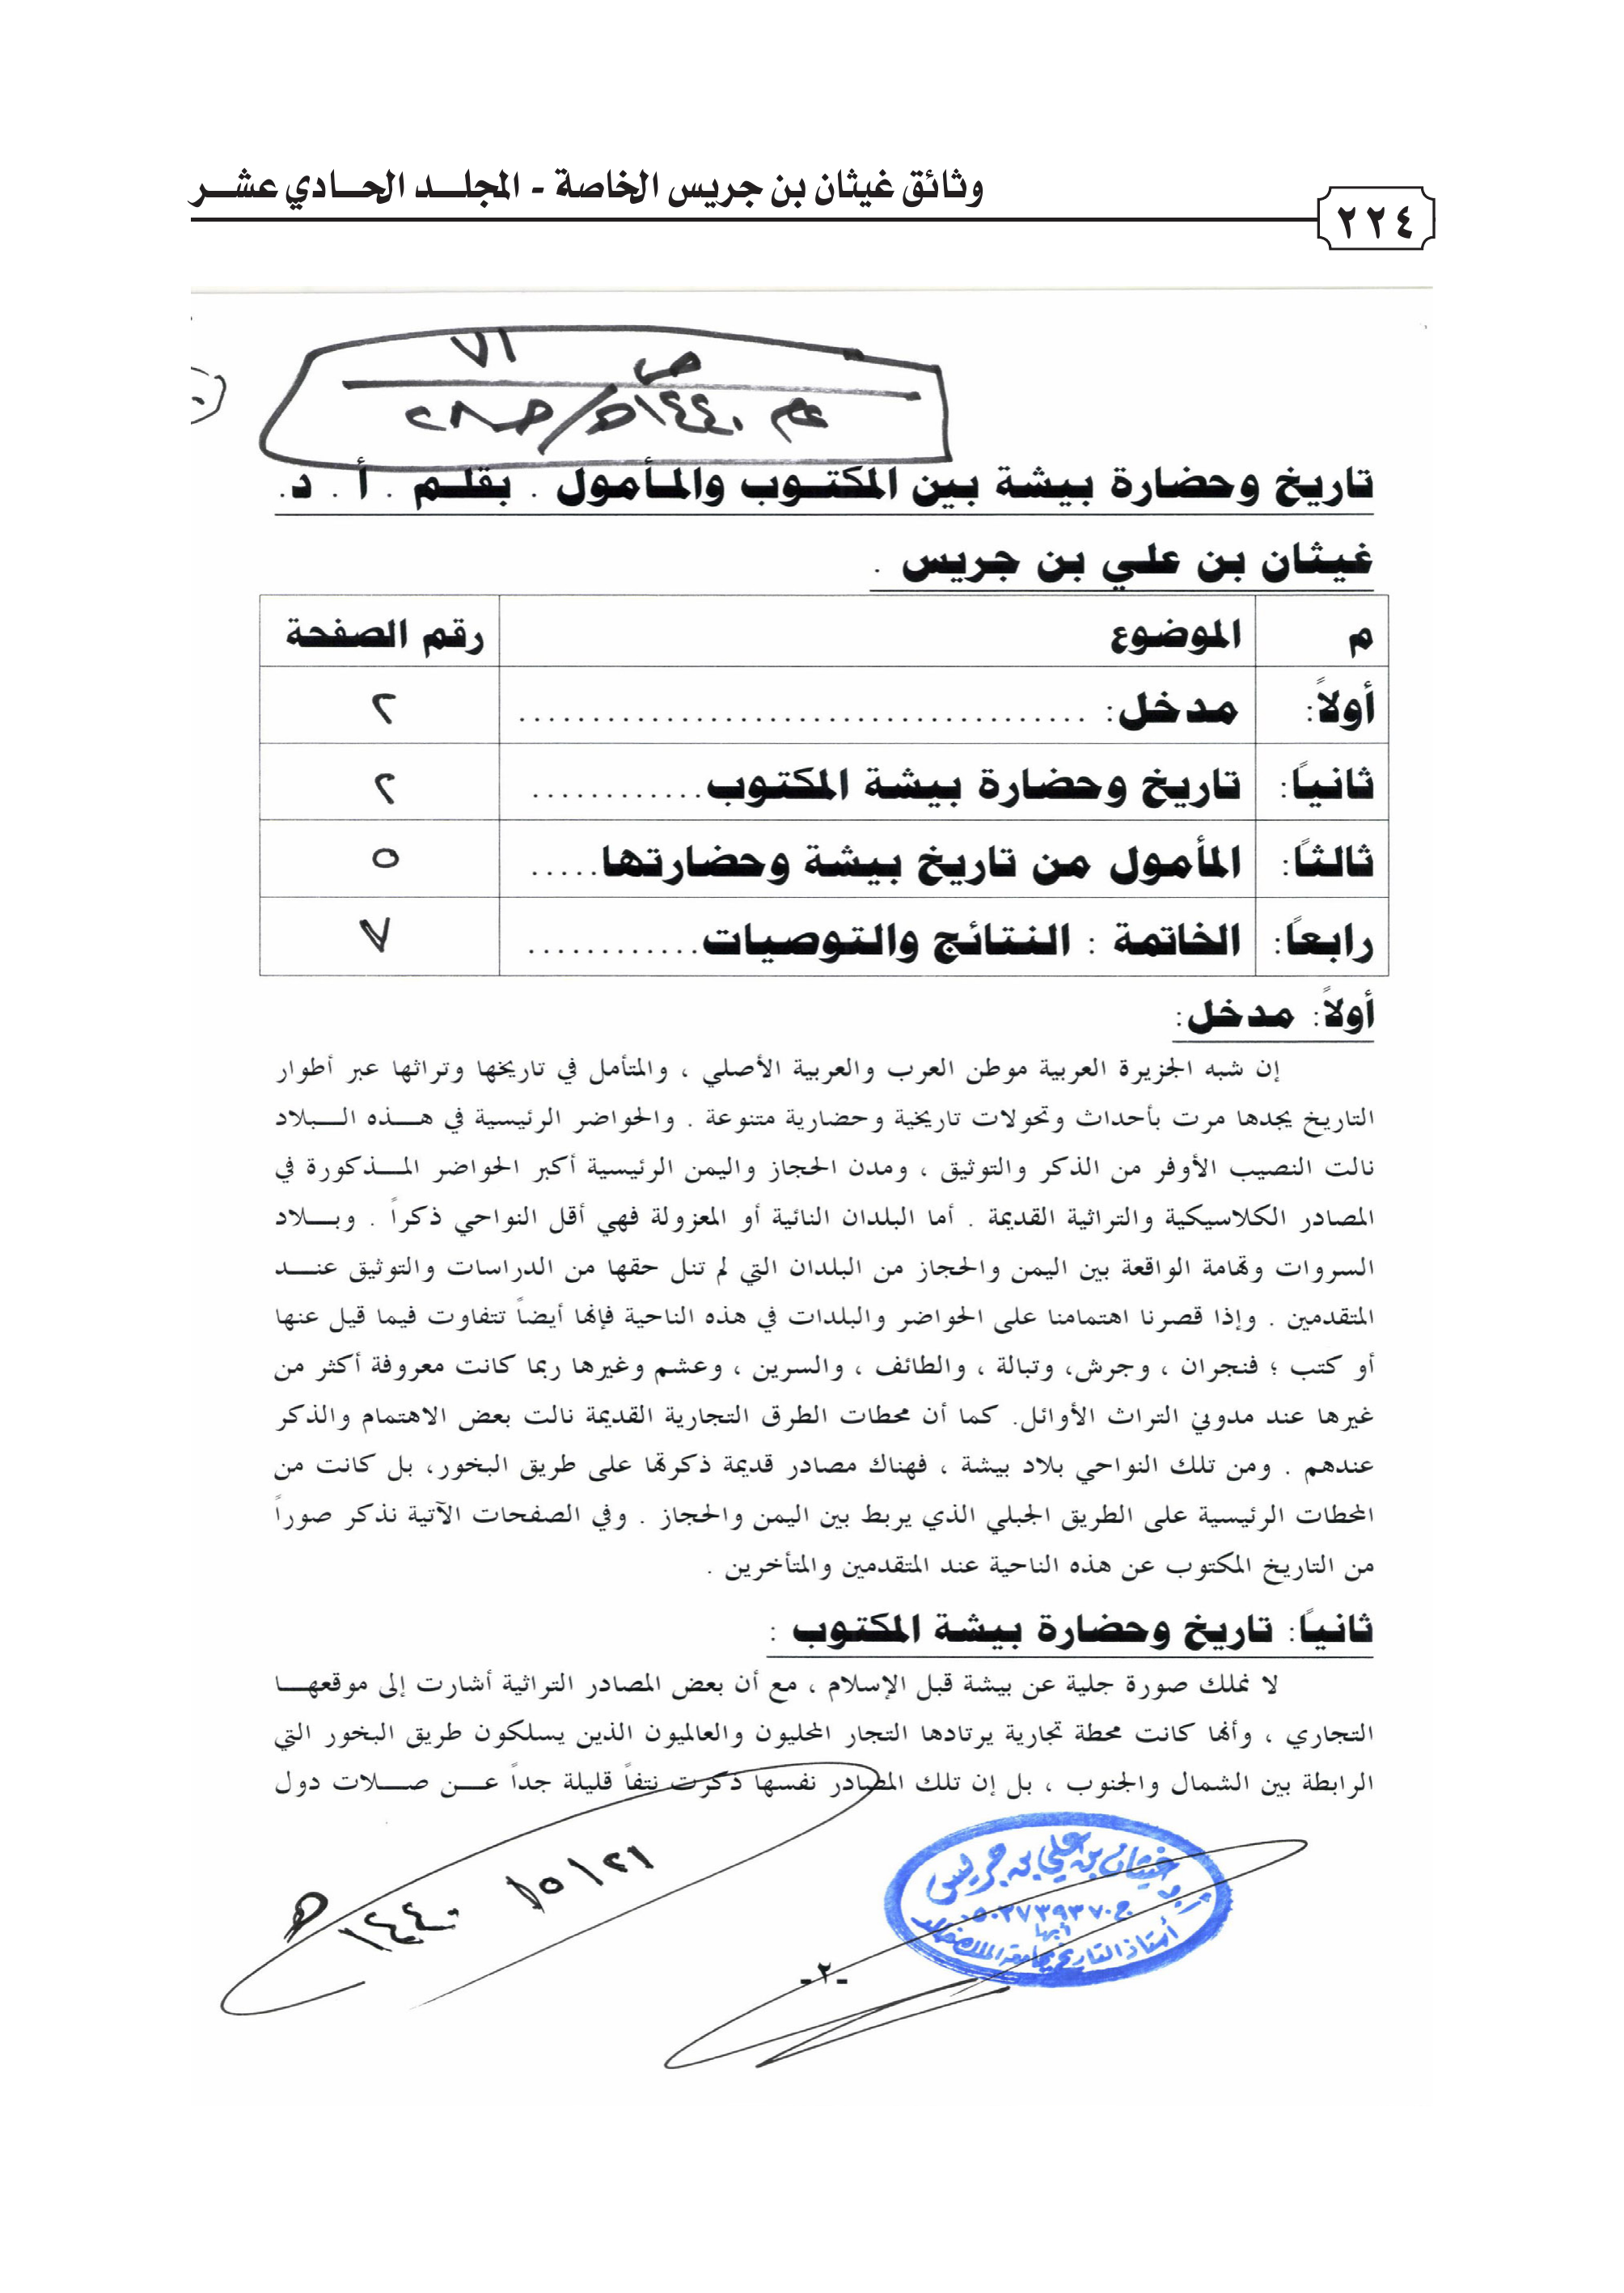 وثائق غيثان بن جريس الخاصة - المجلـــد الحـــادي عشـــر
٢٢٤
٧١
ص
عام ١٤٤٠هـ/ص٢٨
تاريخ وحضارة بيشة بين المكتــوب والمـأمول . بقلــم . أ . د.
غيثان بن علي بن جريس .
م الموضوع رقم الصفحة
أولاً: مدخل: ....................................... ٢
ثانياً: تاريخ وحضارة بيشة المكتوب............ ٢
ثالثاً: المأمول من تاريخ بيشة وحضارتها..... ٥
رابعاً: الخاتمة : النتائج والتوصيات............ ٧
أولاً: مدخل:
إن شبه الجزيرة العربية موطن العرب والعربية الأصلي ، والمتأمل في تاريخها وتراثها عبر أطوار
التاريخ يجدها مرت بأحداث وتحولات تاريخية وحضارية متنوعة . والحواضر الرئيسية في هـــذه الـــبلاد
نالت النصيب الأوفر من الذكر والتوثيق ، ومدن الحجاز واليمن الرئيسية أكبر الحواضر المـــذكورة في
المصادر الكلاسيكية والتراثية القديمة . أما البلدان النائية أو المعزولة فهي أقل النواحي ذكراً . وبـــلاد
السروات وتهامة الواقعة بين اليمن والحجاز من البلدان التي لم تنل حقها من الدراسات والتوثيق عنـــد
المتقدمين . وإذا قصرنا اهتمامنا على الحواضر والبلدات في هذه الناحية فإنها أيضاً تتفاوت فيما قيل عنها
أو كتب ؛ فنجران ، وجرش، وتبالة ، والطائف ، والسرين ، وعشم وغيرها ربما كانت معروفة أكثر من
غيرها عند مدوني التراث الأوائل. كما أن محطات الطرق التجارية القديمة نالت بعض الاهتمام والذكر
عندهم . ومن تلك النواحي بلاد بيشة ، فهناك مصادر قديمة ذكرتها على طريق البخور، بل كانت من
المحطات الرئيسية على الطريق الجبلي الذي يربط بين اليمن والحجاز . وفي الصفحات الآتية نذكر صوراً
من التاريخ المكتوب عن هذه الناحية عند المتقدمين والمتأخرين .
ثانياً: تاريخ وحضارة بيشة المكتوب :
لا نملك صورة جلية عن بيشة قبل الإسلام ، مع أن بعض المصادر التراثية أشارت إلى موقعهـــا
التجاري ، وأنها كانت محطة تجارية يرتادها التجار المحليون والعالميون الذين يسلكون طريق البخور التي
الرابطة بين الشمال والجنوب ، بل إن تلك المصادر نفسها ذكرت نتفاً قليلة جداً عـــن صـــلات دول
٢١/٥/١٤٤٠هـ
أ.د غيثان بن علي بن جريس
ج ٠٥٠٣٧٣٩٣٧٠
أبها
أستاذ التاريخ بجامعة الملك خالد
-٢-